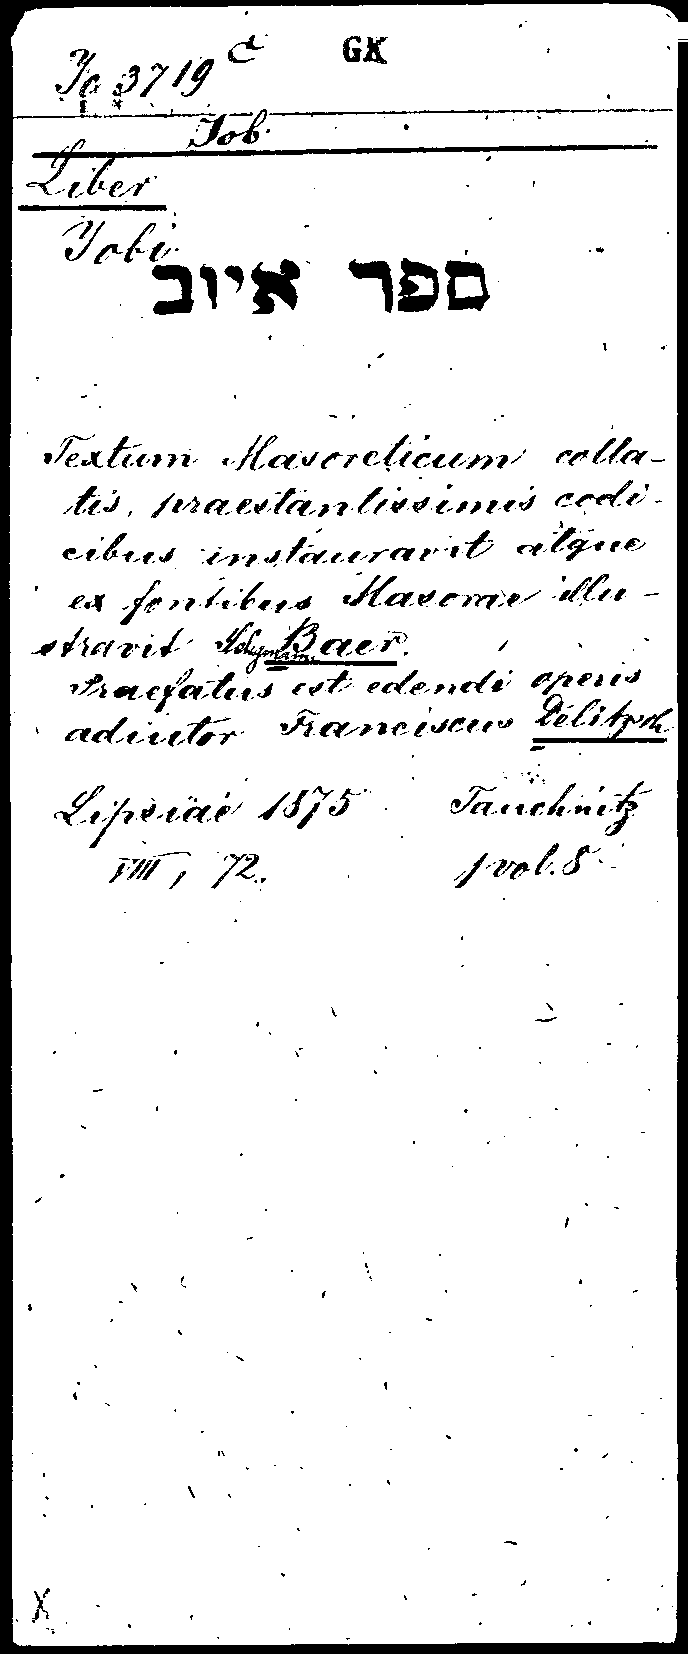 Yo 3719 a
GX
Job.
Liber
Jobi
ספר איוב
Textum Masoreticum colla-
tis, praestantissimis codi-
cibus instauravit atque
ex fontibus Masorae illu-
stravit Baer.
Praefatus est edendi operis
adiutor Franciscus Delitzsch
Lipsiae 1875 Tauchnitz
VIII, 72. 1 vol. 8
X